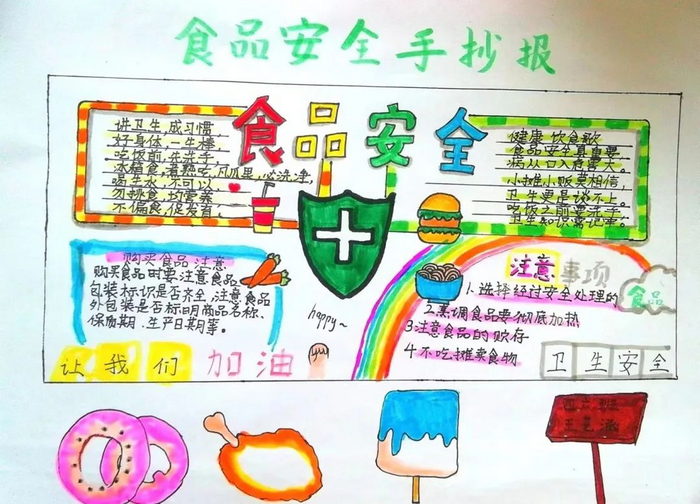 食品安全手抄报
食品安全
讲卫生,成习惯,
好身体,一生棒,
吃饭前,先洗手,
冰箱食,煮熟吃,瓜瓜果,必洗净,
喝生水,不可以,
勿挑食,均营养,
不偏食,促发育。
健康饮食歌
食品安全真重要
病从口入危害大。
小摊小贩莫相信,
卫生更是谈不上。
吃饭之前要洗手
卫生知识需记牢。
购买食品注意
购买食品时要注意食品
包装标识是否齐全,注意食品
外包装是否标明商品名称、
保质期、生产日期等。
happy~
注意事项
1.选择经过安全处理的
食品
2.烹调食品要彻底加热
3注意食品的贮存
4不吃摊卖食物
让我们加油
卫生安全